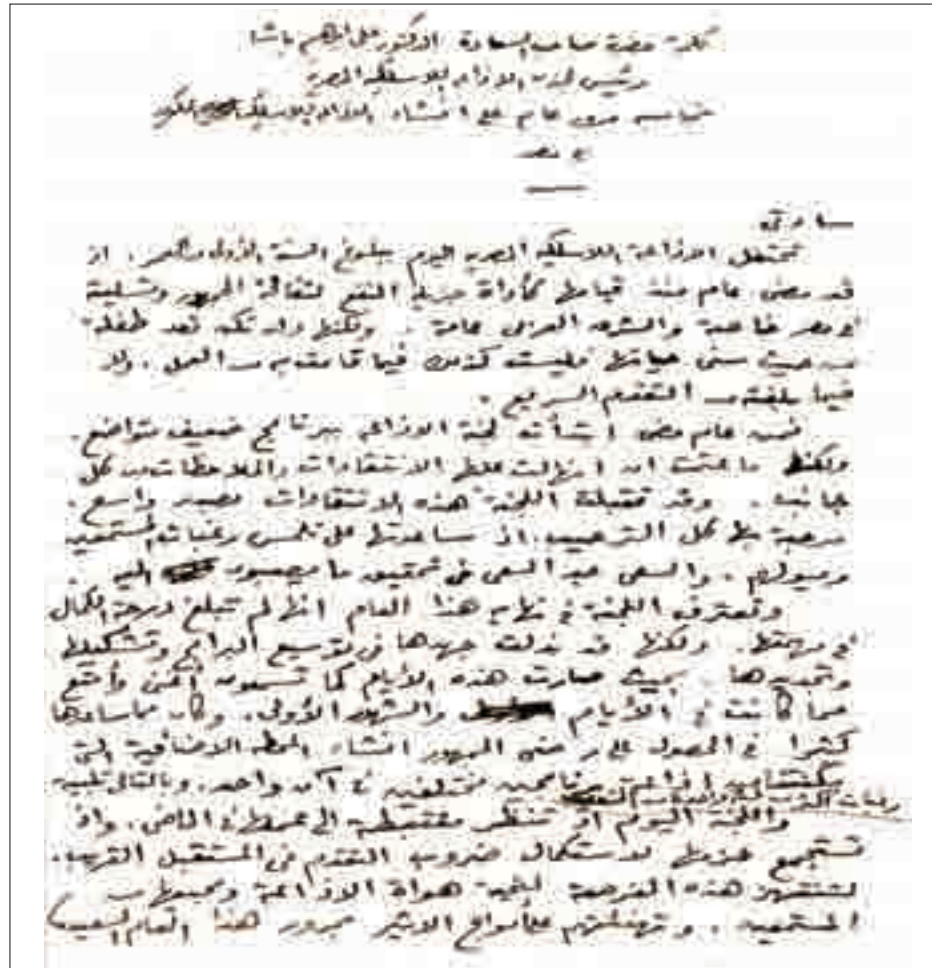 كلمة حضرة صاحب السعادة الدكتور على ابراهيم باشا
رئيس لجنة الاذاعة اللاسلكية المصرية
بمناسبة مرور عام على انشاء الاذاعة اللاسلكية
في مصر
سادتى
تحتفل الاذاعة اللاسلكية المصرية اليوم ببلوغ السنة الأولى من العمر، اذ
قد مضى عام منذ قيامها كأداة جزيلة النفع لثقافة الجمهور وتسلية
في مصر خاصة والشرق العربى عامة. ولكنها وان تكن تعد طفلة
من حيث سنى حياتها فليست كذلك فيما قامت به من العمل، ولا
فيما بلغته من التقدم السريع.
فمن عام مضى ابتدأت لجنة الاذاعة ببرنامج ضعيف متواضع.
ولكنها ما لبثت ان انهالت عليها الانتقادات والملاحظات من كل
جانب. وقد تقبلت اللجنة هذه الانتقادات بصدر واسع.
مرحبة بها كل الترحيب، اذ ساعدتها على تلمس رغبات المستمعين
وميولهم. والسعى عند السعى في تحقيق ما يصبون اليه
وتعترف اللجنة في نهاية هذا العام انها لم تبلغ درجة الكمال
في مهمتها. ولكنها قد بذلت جهدها في توسيع البرامج وتشكيلها
وتجديدها بحيث صارت هذه الأيام كما تسمعون أغنى وأمتع
مما كانت في الأيام والشهور الأولى. وكان مما ساعدها
كثيرا في الحصول على رضى الجمهور انشاء المحطة الاضافية التى
مكنتنا من اذاعة برنامجين مختلفين في آن واحد. وبالتالى تلبية
رغبات
واللجنة اليوم اذ تنظر مغتبطة الى عملها في الماضى. واذ
تستجمع عزمها لاستكمال ضروب التقدم في المستقبل القريب.
لتنتهز هذه الفرصة لتحية هواة الاذاعة ومحبيها من
المستمعين. وتهنئتهم على أمواج الاثير بمرور هذا العام السعيد